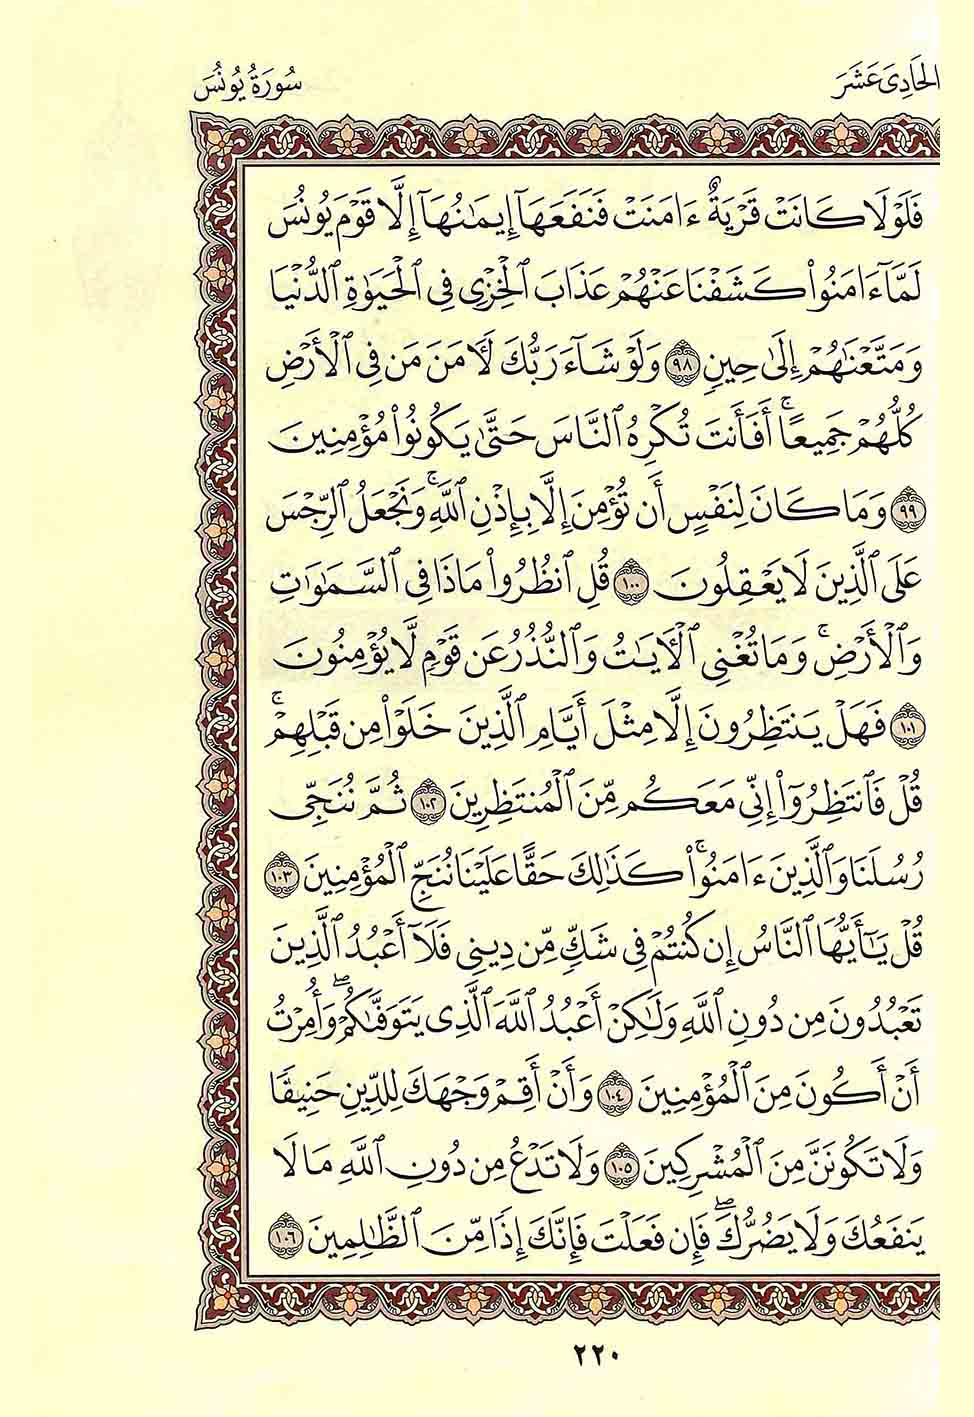 الحَادِى عَشَرَ
سُورَةُ يُونُسَ
فَلَوْلَا كَانَتْ قَرْيَةٌ ءَامَنَتْ فَنَفَعَهَآ إِيمَٰنُهَآ إِلَّا قَوْمَ يُونُسَ
لَمَّآ ءَامَنُوا۟ كَشَفْنَا عَنْهُمْ عَذَابَ ٱلْخِزْىِ فِى ٱلْحَيَوٰةِ ٱلدُّنْيَا
وَمَتَّعْنَٰهُمْ إِلَىٰ حِينٍ ٩٨ وَلَوْ شَآءَ رَبُّكَ لَءَامَنَ مَن فِى ٱلْأَرْضِ
كُلُّهُمْ جَمِيعًا ۚ أَفَأَنتَ تُكْرِهُ ٱلنَّاسَ حَتَّىٰ يَكُونُوا۟ مُؤْمِنِينَ
٩٩ وَمَا كَانَ لِنَفْسٍ أَن تُؤْمِنَ إِلَّا بِإِذْنِ ٱللَّهِ ۚ وَنَجْعَلُ ٱلرِّجْسَ
عَلَى ٱلَّذِينَ لَا يَعْقِلُونَ ١٠٠ قُلِ ٱنظُرُوا۟ مَاذَا فِى ٱلسَّمَٰوَٰتِ
وَٱلْأَرْضِ ۚ وَمَا تُغْنِى ٱلْءَايَٰتُ وَٱلنُّذُرُ عَن قَوْمٍ لَّا يُؤْمِنُونَ
١٠١ فَهَلْ يَنتَظِرُونَ إِلَّا مِثْلَ أَيَّامِ ٱلَّذِينَ خَلَوْا۟ مِن قَبْلِهِمْ ۚ
قُلْ فَٱنتَظِرُوٓا۟ إِنِّى مَعَكُم مِّنَ ٱلْمُنتَظِرِينَ ١٠٢ ثُمَّ نُنَجِّى
رُسُلَنَا وَٱلَّذِينَ ءَامَنُوا۟ ۚ كَذَٰلِكَ حَقًّا عَلَيْنَا نُنجِّ ٱلْمُؤْمِنِينَ ١٠٣
قُلْ يَٰٓأَيُّهَا ٱلنَّاسُ إِن كُنتُمْ فِى شَكٍّ مِّن دِينِى فَلَآ أَعْبُدُ ٱلَّذِينَ
تَعْبُدُونَ مِن دُونِ ٱللَّهِ وَلَٰكِنْ أَعْبُدُ ٱللَّهَ ٱلَّذِى يَتَوَفَّىٰكُمْ ۖ وَأُمِرْتُ
أَنْ أَكُونَ مِنَ ٱلْمُؤْمِنِينَ ١٠٤ وَأَنْ أَقِمْ وَجْهَكَ لِلدِّينِ حَنِيفًا
وَلَا تَكُونَنَّ مِنَ ٱلْمُشْرِكِينَ ١٠٥ وَلَا تَدْعُ مِن دُونِ ٱللَّهِ مَا لَا
يَنفَعُكَ وَلَا يَضُرُّكَ ۖ فَإِن فَعَلْتَ فَإِنَّكَ إِذًا مِّنَ ٱلظَّٰلِمِينَ ١٠٦
٢٢٠